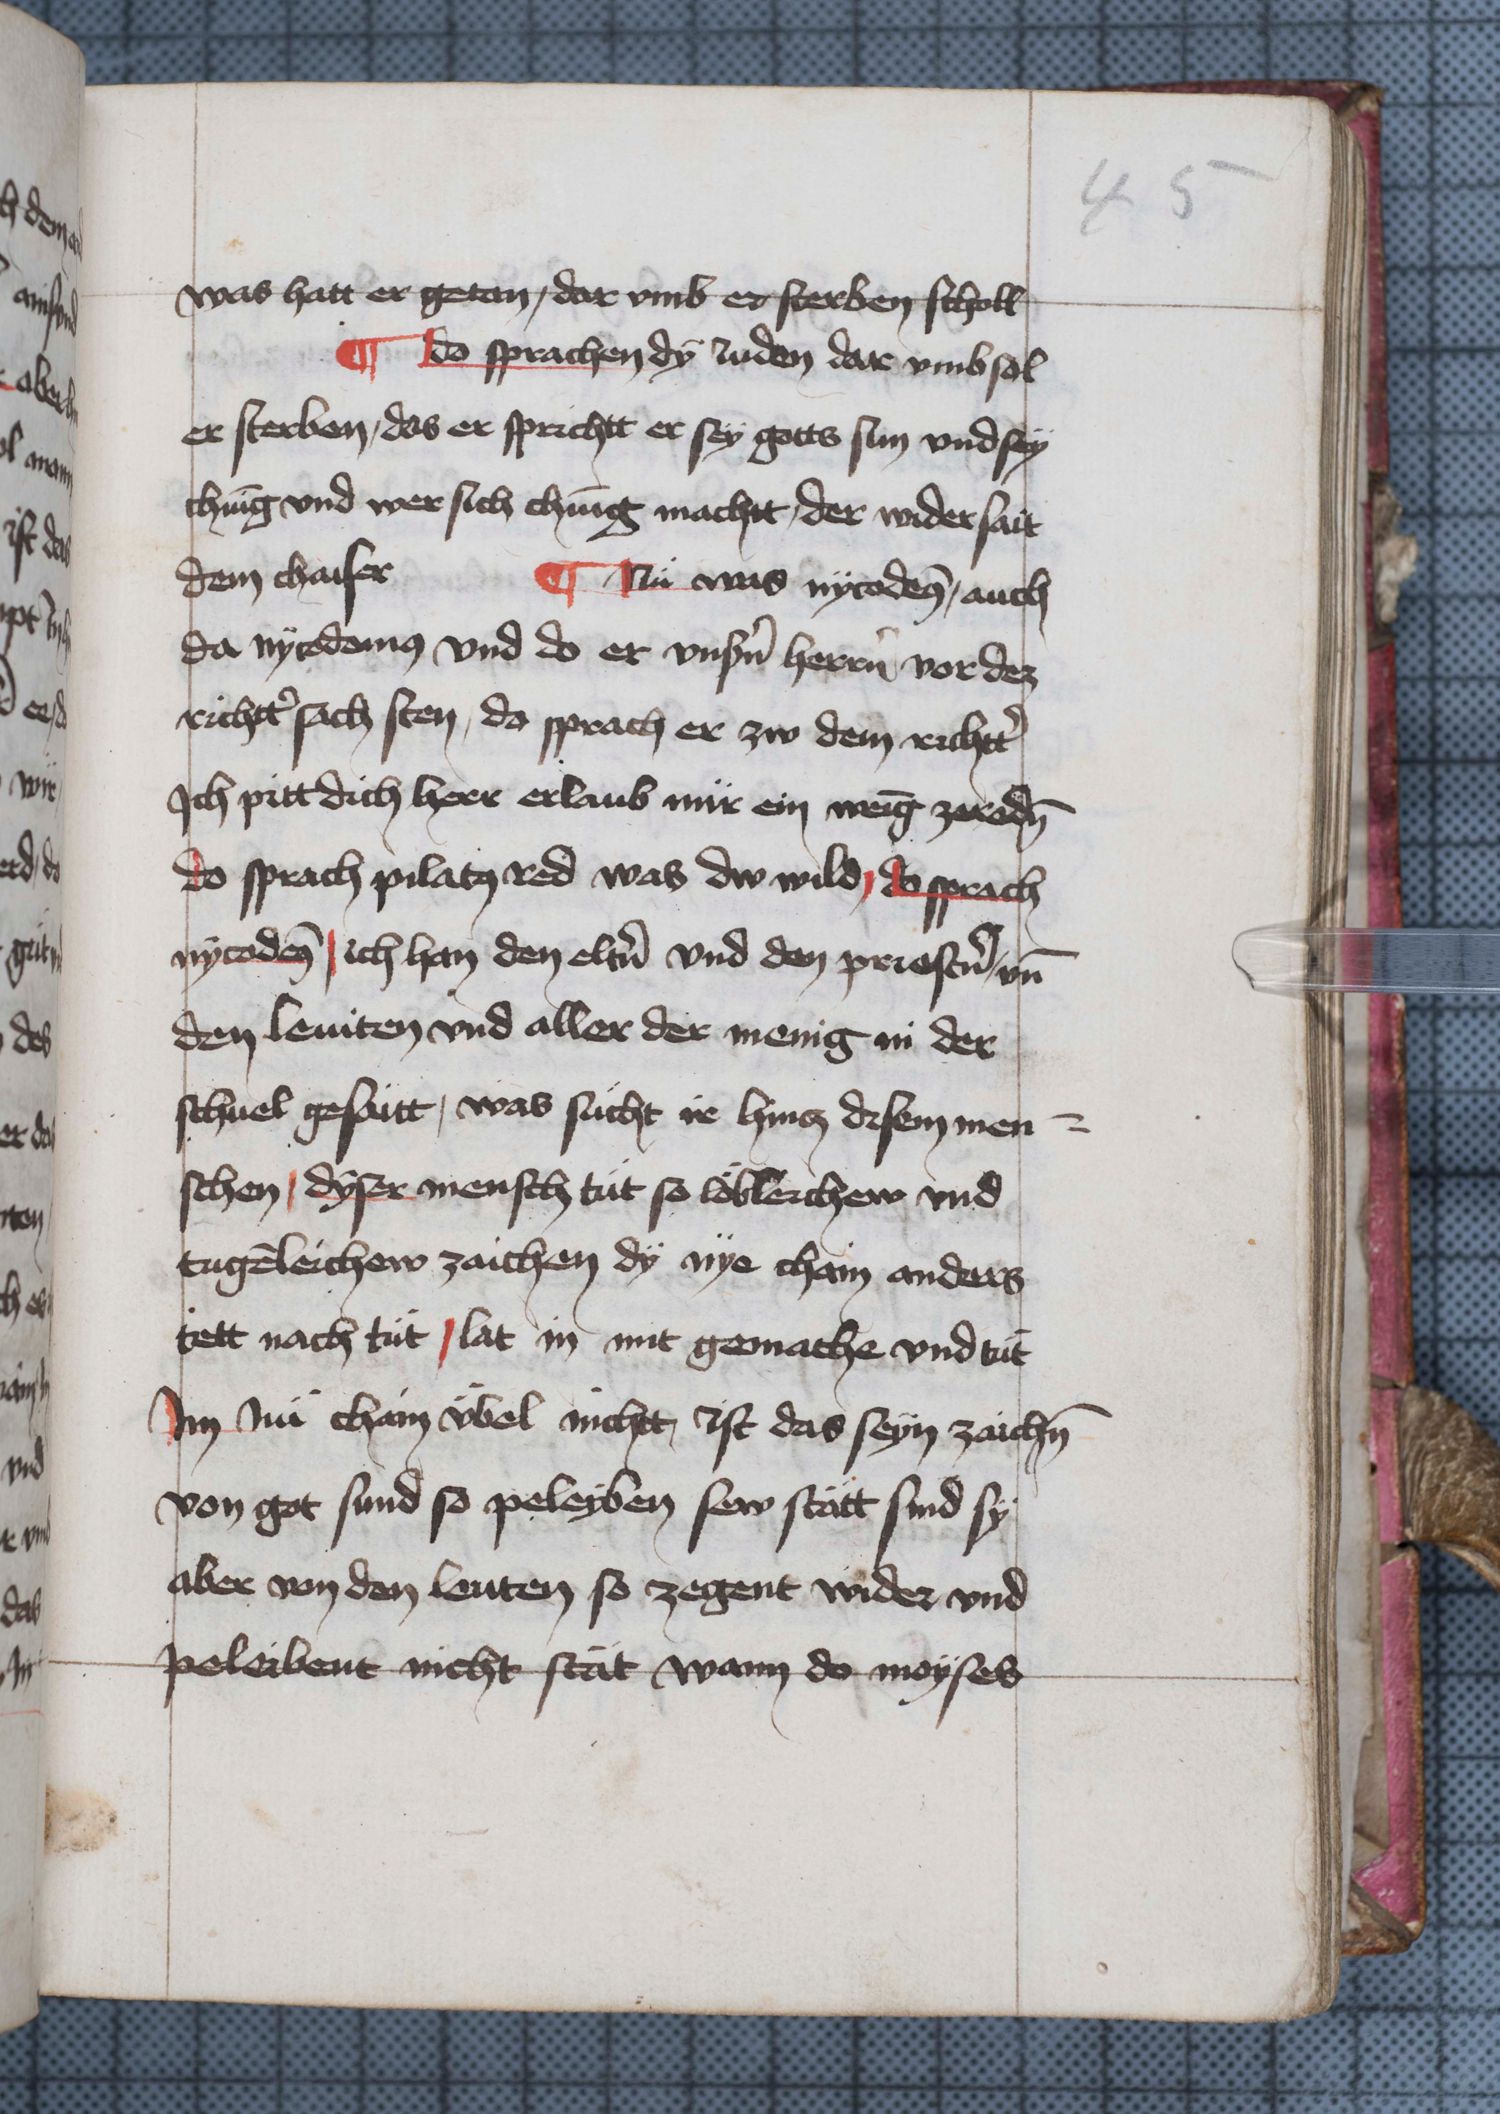 45
was hatt er getan / dar vmb er sterben scholl
¶ do sprachen dÿ Juden dar vmb sol
er sterben / das er sprichtt er seÿ gotts sun vnd seÿ
chūīg vnd wer sich chūīg machtt / der wider sait
dem chaiser ¶ Nü was nÿcodem̄ / auch
da nÿcodemꝰ vnd do er vnsn̄ herrn̄ vor dez
richtt̄ sach sten / do sprach er zw dem richtt̄
Jch pitt dich herr erlaub mir ein weīg zeredn̄
do sprach pilatꝰ red was dw wild / do sprach
nÿcodem̄ / ich han den eltn̄ vnd den priestn̄ / vn̄
den leuiten vnd aller der menig in der
schuel gesaitt / was sücht ir hincz disem men =
schen / dÿser mensch tüt so löbleichew vnd
tugēleichew zaichen dÿ nÿe chain anders
tett nach tüt / lat in mit gemache vnd tüt
Jm nü chain übel nichtt / ist das seÿn zaichn̄
von got sund so peleÿben sew stätt sind sÿ
aber von den leuten so zegent wider vnd
peleibent nicht stät wann do moÿses